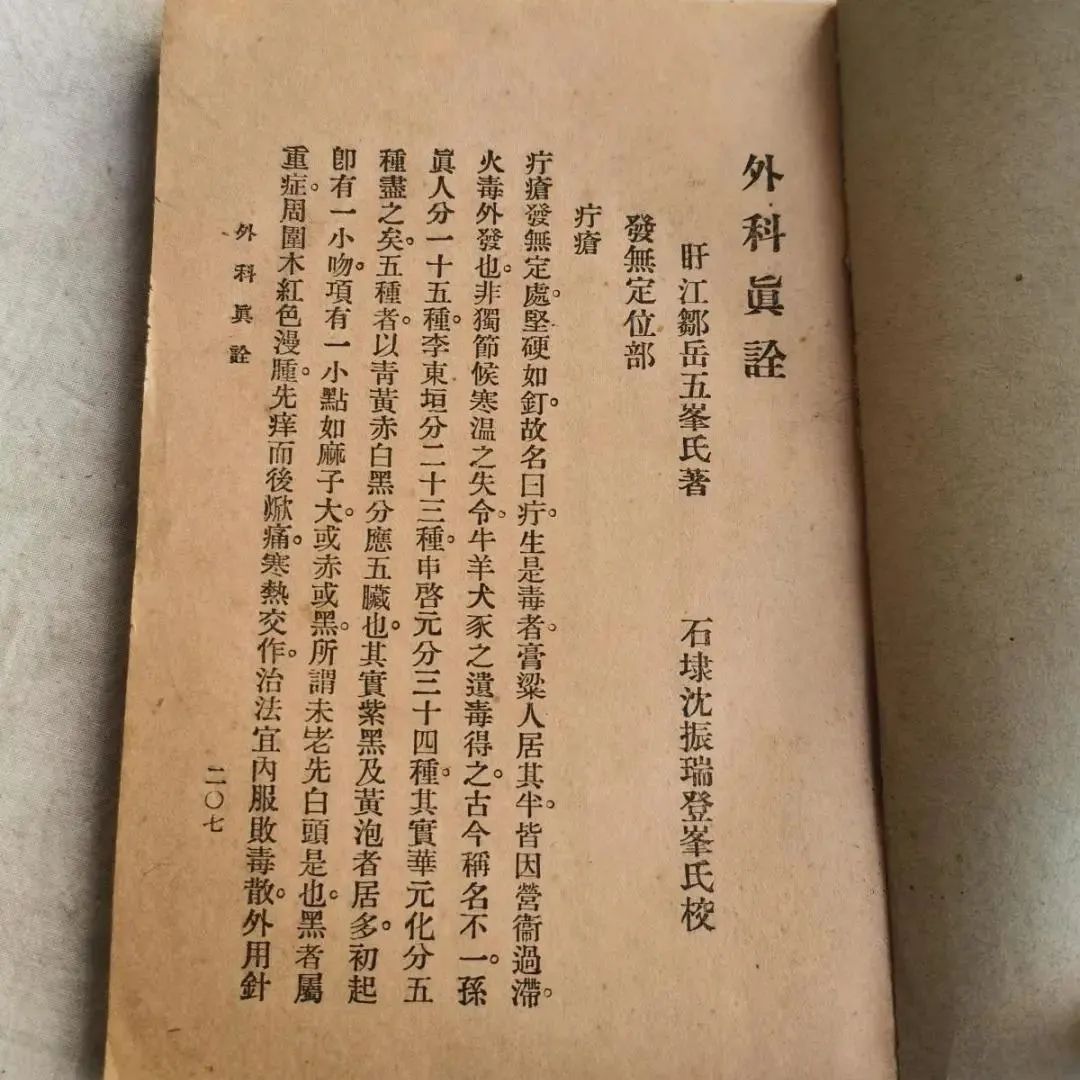 外科眞詮
盱江鄒岳五峯氏著　石埭沈振瑞登峯氏校
發無定位部
疔瘡
疔瘡發無定處。堅硬如釘。故名曰疔。生是毒者。膏粱人居其半。皆因營衞過滯。
火毒外發也。非獨節候寒温之失令。牛羊犬豕之遺毒得之。古今稱名不一。孫
眞人分一十五種。李東垣分二十三種。申啓元分三十四種。其實華元化分五
種盡之矣。五種者。以靑黃赤白黑分應五臟也。其實紫黑及黃泡者居多。初起
卽有一小吻。項有一小點如麻子大。或赤或黑。所謂未老先白頭是也。黑者屬
重症。周圍木紅色漫腫。先痒而後焮痛。寒熱交作。治法宜內服敗毒散。外用針
外科眞詮
二〇七